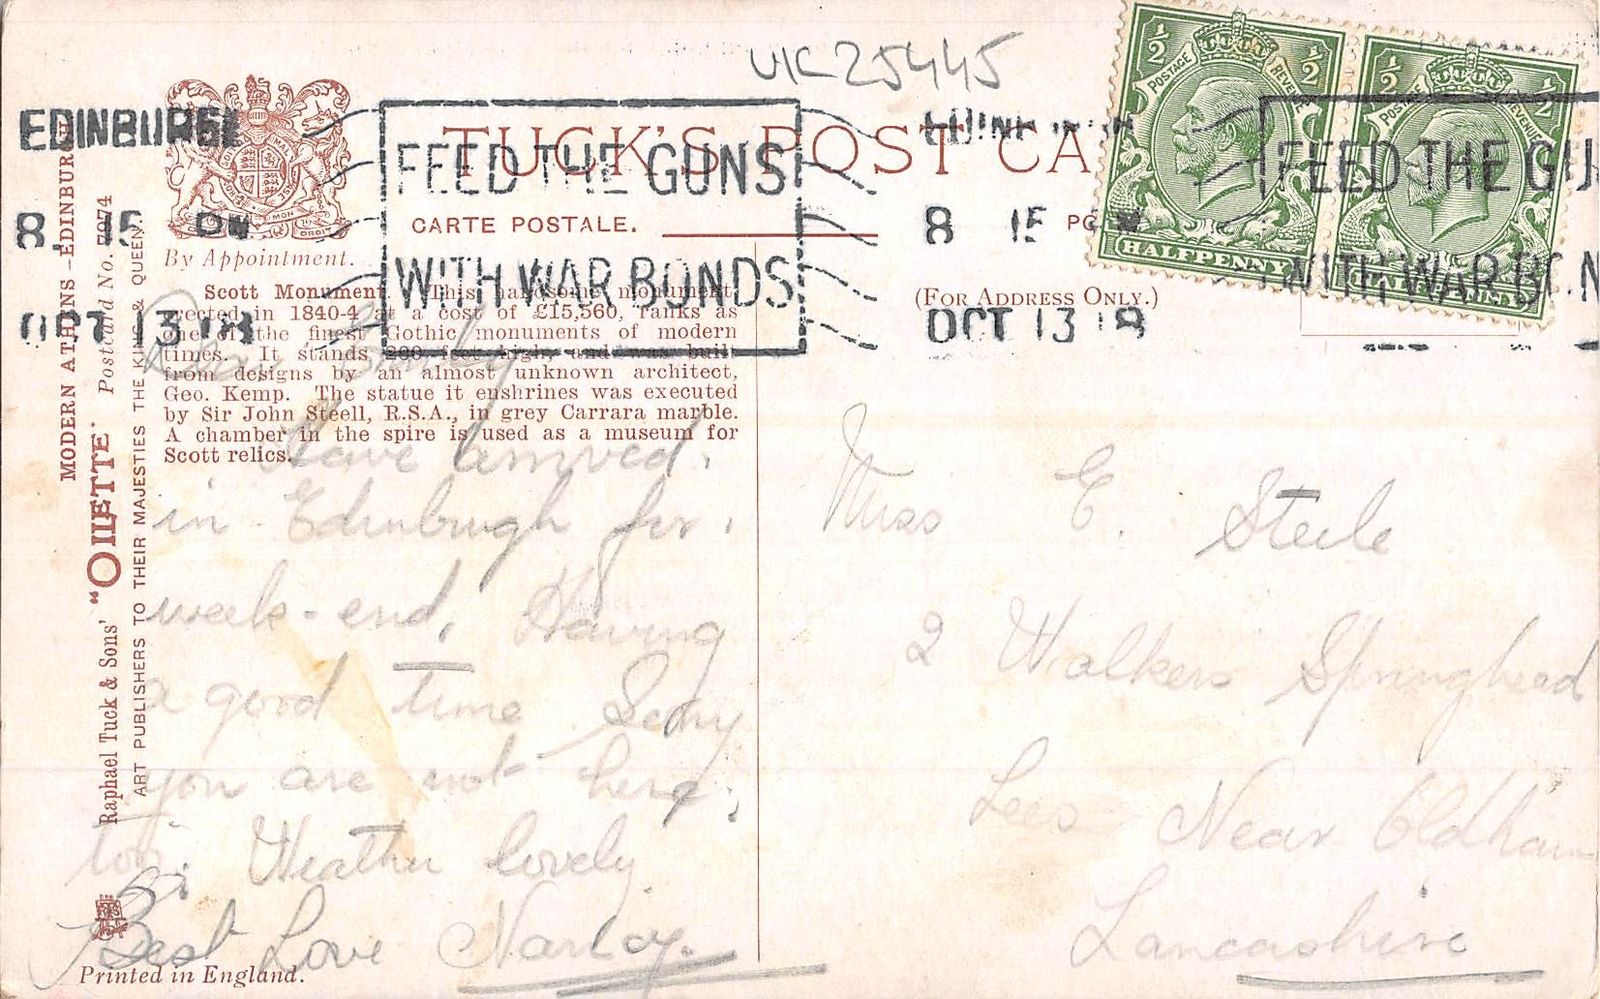 UK25445
EDINBURGH
8. 15 PM
OCT 13 18
FEED THE GUNS
WITH WAR BONDS
8 15 PM
OCT 13 18
FEED THE GU
WITH WAR BON
½ ½
POSTAGE REVENUE
HALFPENNY
½ ½
POSTAGE REVENUE
HALFPENNY
TUCK'S POST CA
CARTE POSTALE.
(FOR ADDRESS ONLY.)
By Appointment.
Scott Monument. This handsome monument
erected in 1840-4 at a cost of £15,560, ranks as
one of the finest Gothic monuments of modern
times. It stands 200 feet high, and was built
from designs by an almost unknown architect,
Geo. Kemp. The statue it enshrines was executed
by Sir John Steell, R.S.A., in grey Carrara marble.
A chamber in the spire is used as a museum for
Scott relics.
MODERN ATHENS-EDINBURGH
Raphael Tuck & Sons' "OILETTE" Postcard No. 7074
ART PUBLISHERS TO THEIR MAJESTIES THE KING & QUEEN.
Dear
Have arrived.
in Edinburgh for.
week-end. Having
a good time Sorry
you are not here.
too. Weather lovely.
Best Love
Printed in England.
Miss E. Steele
2 Walkers Springhead
Lees Near Oldham
Lancashire